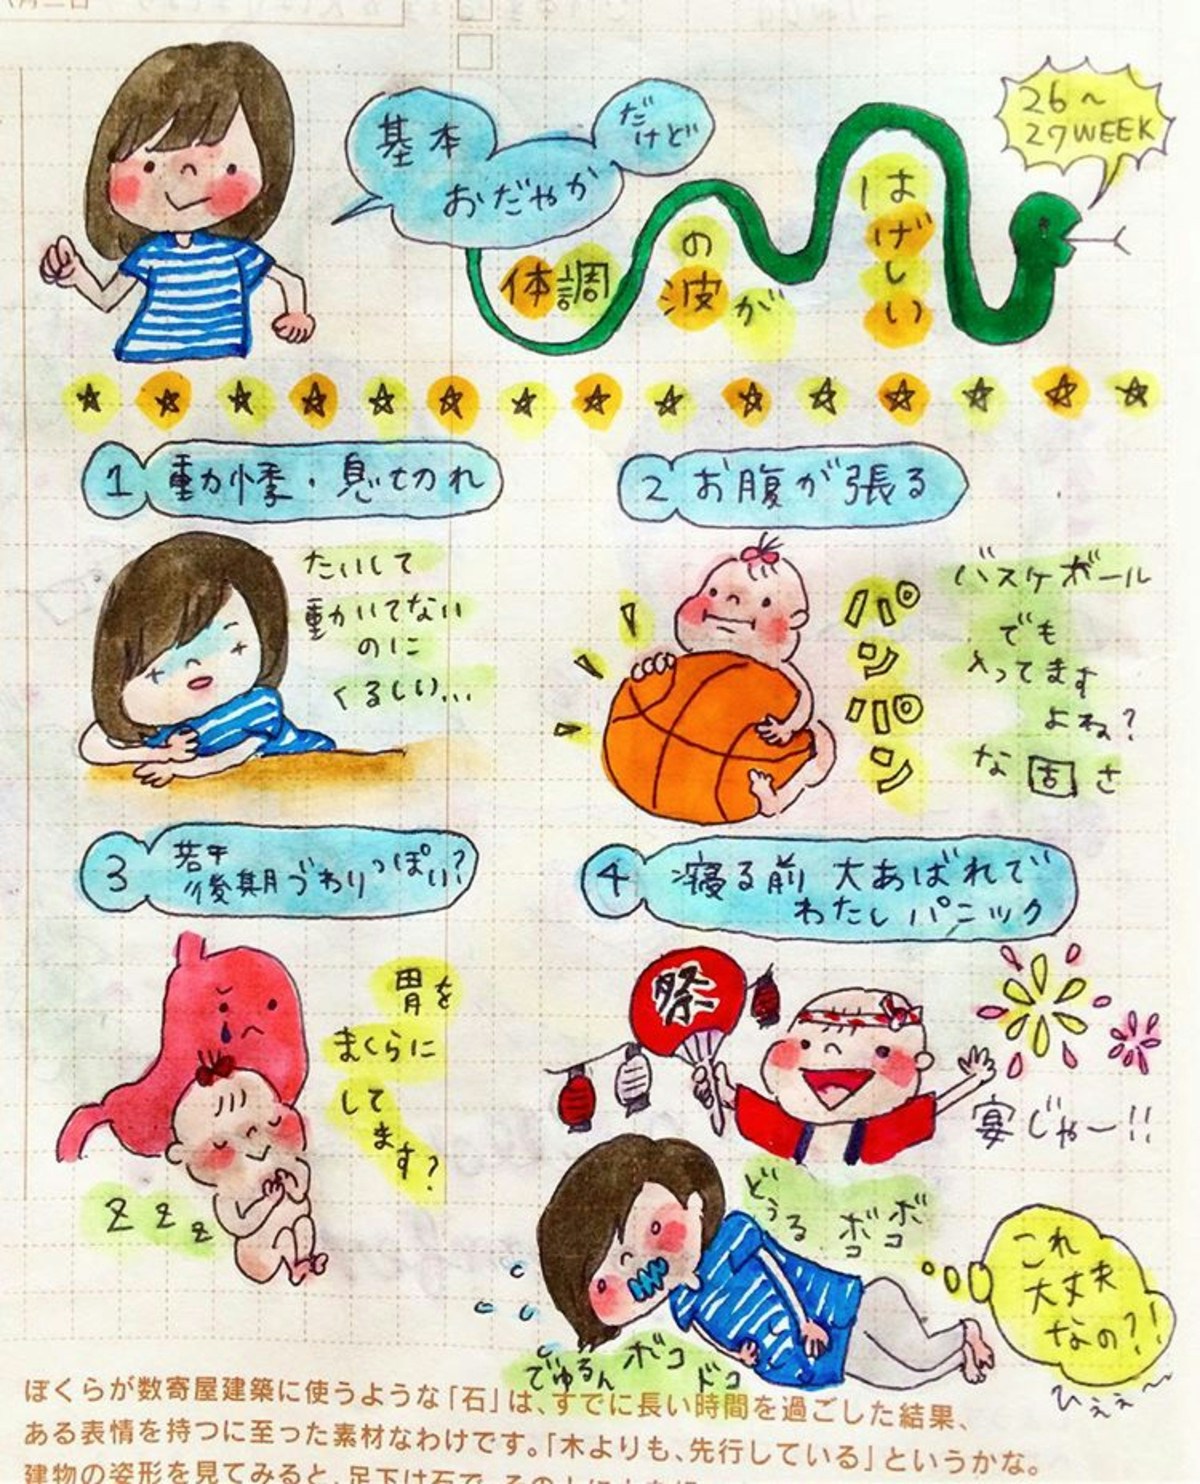 基本
おだやか
だけど
体調
の
波が
はげしい
26~
27WEEK
1 動悸・息切れ
たいして
動いてない
のに
くるしい...
2 お腹が張る
パンパン
バスケボール
でも
入ってます
よね?
な固さ
3 若干
後期づわりっぽい?
胃を
まくらに
して
ます?
z z z
4 寝る前 大あばれで
わたしパニック
祭
宴じゃー!!
どぅる
ボコ
ボコ
でゅるん
ボコ
ドコ
これ
大丈夫
なの?!
ひぇぇ〜
ぼくらが数寄屋建築に使うような「石」は、すでに長い時間を過ごした結果、
ある表情を持つに至った素材なわけです。「木よりも、先行している」というかな。
建物の姿形を見てみると、足下は石で、その上に木を組